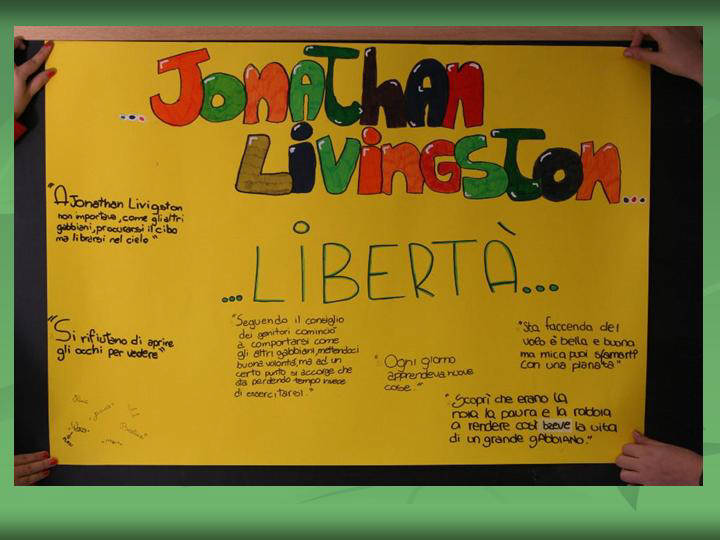 ...JONATHAN
LIVINGSTON...
"A Jonathan Livigston
non importava, come gli altri
gabbiani, procurarsi il cibo
ma librarsi nel cielo"
...LIBERTÀ...
"Si rifiutano di aprire
gli occhi per vedere"
"Seguendo il consiglio
dei genitori cominciò
a comportarsi come
gli altri gabbiani, mettendoci
buona volontà, ma ad un
certo punto si accorge che
sta perdendo tempo invece
di esercitarsi."
"Ogni giorno
apprendeva nuove
cose."
"Sta faccenda del
volo è bella e buona
ma mica puoi sfamarti
con una planata"
"Scoprì che erano la
noia la paura e la rabbia
a rendere così breve la vita
di un grande gabbiano."